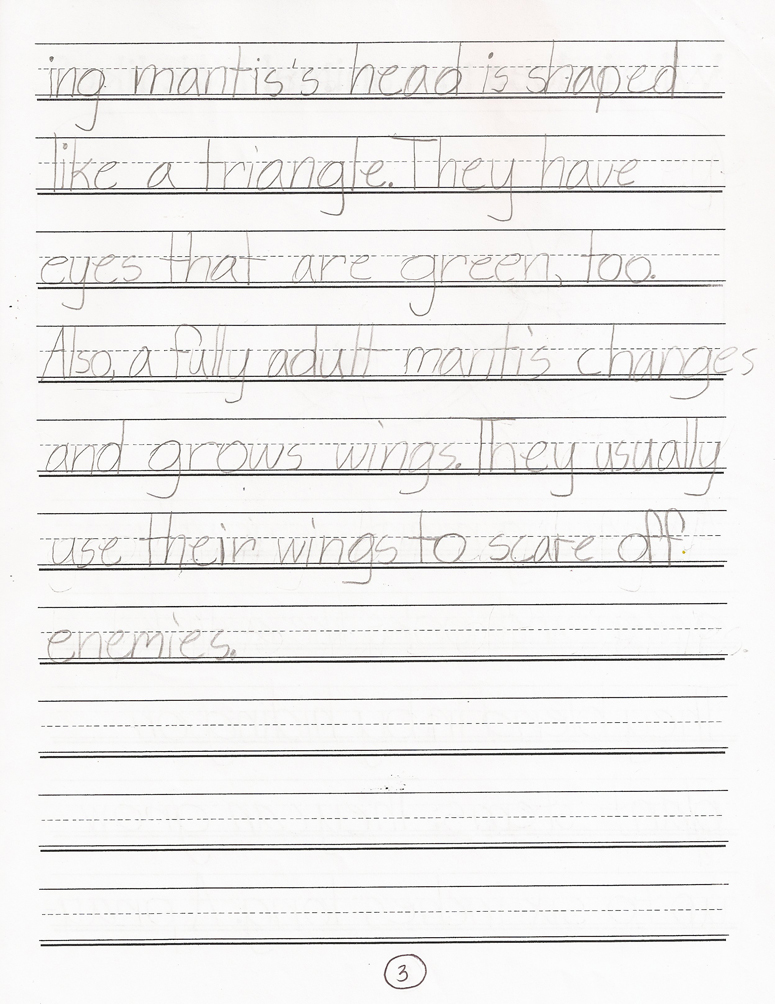 ing mantis's head is shaped
like a triangle. They have
eyes that are green, too.
Also, a fully adult mantis changes
and grows wings. They usually
use their wings to scare off
enemies.
3